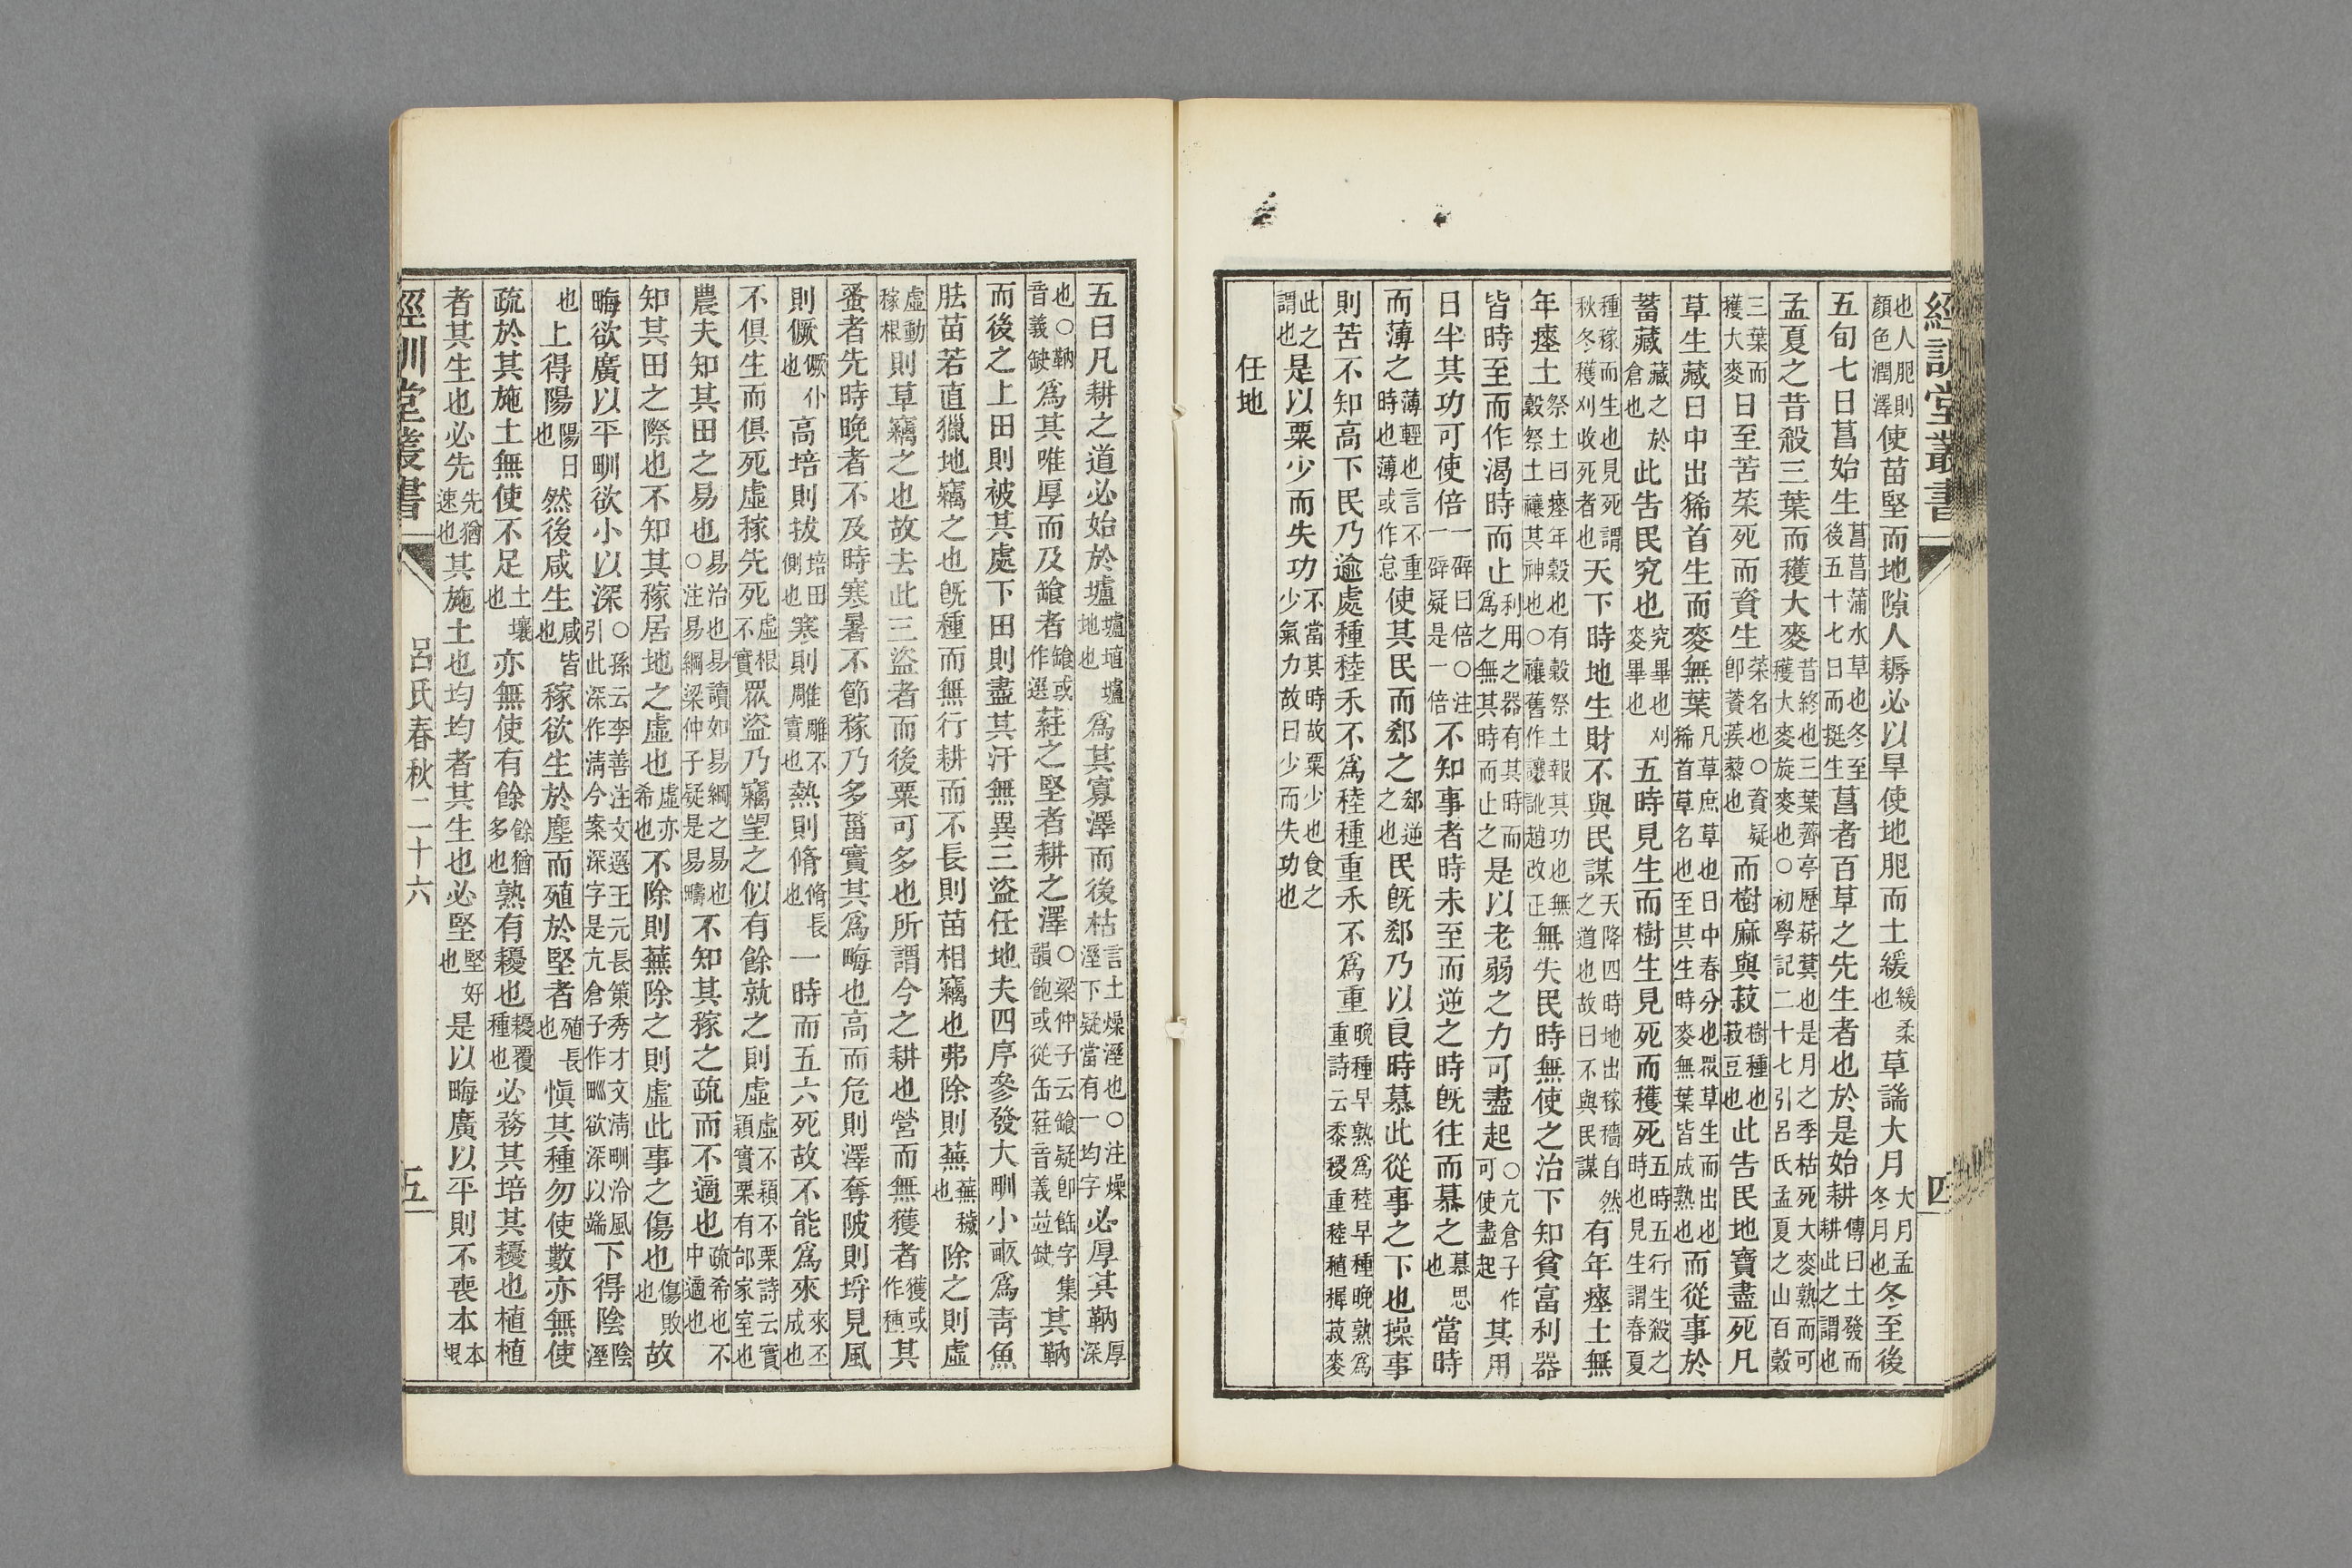 經訓堂叢書
四
也人肥則顏色潤澤使苗堅而地隙人耨必以旱使地肥而土緩緩柔也草諯大月大月孟冬月也冬至後
五旬七日菖始生菖菖蒲水草也冬至後五十七日而挺生菖者百草之先生者也於是始耕傳曰土發而耕此之謂也
孟夏之昔殺三葉而穫大麥昔終也三葉薺亭歷菥蓂也是月之季枯死大麥熟而可穫大麥旋麥也○初學記二十七引呂氏孟夏之山百穀
三葉而穫大麥日至苦菜死而資生菜名也○資疑卽薋蒺藜也而樹麻與菽樹種也菽豆也此告民地寶盡死凡
草生藏日中出狶首生而麥無葉凡草庶草也日中春分也眾草生而出也狶首草名也至其生時麥無葉皆成熟也而從事於
蓄藏藏之於倉也此告民究也究畢也刈麥畢也五時見生而樹生見死而穫死五時五行生殺之時也見生謂春夏
種稼而生也見死謂秋冬穫刈收死者也天下時地生財不與民謀天降四時地出稼穡自然之道也故曰不與民謀有年瘞土無
年瘞土祭土曰瘞年穀也有穀祭土報其功也無穀祭土禳其神也○禳舊作讓訛趙改正無失民時無使之治下知貧富利器
皆時至而作渴時而止利用之器有其時而爲之無其時而止之是以老弱之力可盡起○亢倉子作可使盡起其用
日半其功可使倍一硸曰倍○注一硸疑是一倍不知事者時未至而逆之時旣往而慕之慕思也當時
而薄之薄輕也言不重時也薄或作怠使其民而郄之郄逆之也民旣郄乃以良時慕此從事之下也操事
則苦不知高下民乃逾處種稑禾不爲稑種重禾不爲重晚種早熟爲稑早種晚熟爲重詩云黍稷重稑稙穉菽麥
此之謂也是以粟少而失功不當其時故粟少也食之少氣力故曰少而失功也
任地
五曰凡耕之道必始於壚壚埴壚地也爲其寡澤而後枯言土燥溼也○注燥溼下疑當有一均字必厚其靹厚深
也○靹音義缺爲其唯厚而及䭑者䭑或作選莊之堅者耕之澤○梁仲子云䭑疑卽䭇字集韻飽或從缶莊音義竝缺其靹
而後之上田則被其處下田則盡其汙無異三盜任地夫四序參發大甽小畝爲靑魚
胠苗若直獵地竊之也旣種而無行耕而不長則苗相竊也弗除則蕪蕪穢也除之則虛
虛動稼根則草竊之也故去此三盜者而後粟可多也所謂今之耕也營而無獲者獲或作種其
蚤者先時晚者不及時寒暑不節稼乃多菑實其爲畮也高而危則澤奪陂則埒見風
則僛僛仆也高培則拔培田側也寒則雕雕不實也熱則脩脩長也一時而五六死故不能爲來來丕成也
不俱生而俱死虛稼先死虛根不實眾盜乃竊望之似有餘就之則虛虛不穎不栗詩云實穎實栗有邰家室也
農夫知其田之易也易治也易讀如易綱之易也○注易綱梁仲子疑是易疇不知其稼之疏而不適也疏希也不中適也
知其田之際也不知其稼居地之虛也虛亦希也不除則蕪除之則虛此事之傷也傷敗也故
畮欲廣以平甽欲小以深○孫云李善注文選王元長策秀才文淸甽泠風引此深作淸今案深字是亢倉子作甽欲深以端下得陰陰溼
也上得陽陽日也然後咸生咸皆也稼欲生於塵而殖於堅者殖長也愼其種勿使數亦無使
疏於其施土無使不足土壤也亦無使有餘餘猶多也熟有耰也耰覆種也必務其培其耰也植植
者其生也必先先猶速也其施土也均均者其生也必堅堅好也是以畮廣以平則不喪本本根
經訓堂叢書
呂氏春秋二十六
五